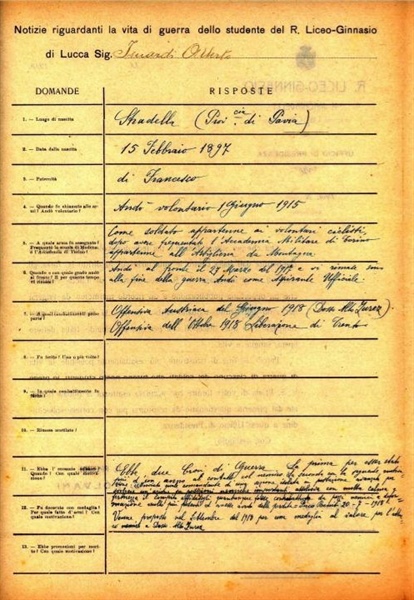 Notizie riguardanti la vita di guerra dello studente del R. Liceo-Ginnasio
di Lucca Sig. Alberto
DOMANDE
RISPOSTE
1. — Luogo di nascita
Stradella (Provcia di Pavia)
2. — Data della nascita
15 Febbraio 1897
3. — Paternità
di Francesco
4. — Quando fu chiamato alle armi? Andò volontario?
Andò volontario 1 Giugno 1915
5. — A quale arma fu assegnato? Frequentò la scuola di Modena o l'Accademia di Torino?
Come soldato appartenne ai volontari ciclisti,
dopo aver frequentata l'Accademia Militare di Torino
appartenne all'Artiglieria da Montagna
6. — Quando e con quale grado andò al fronte? E per quanto tempo vi rimase?
Andò al fronte il 29 Marzo del 1917 e vi rimase sino
alla fine della guerra. Andò come Aspirante Ufficiale.
7. — A quali combattimenti partecipò?
Offensiva Austriaca del Giugno 1918 (Dosso Alto Zurez)
Offensiva dell'Ottobre 1918 Liberazione di Trento
8. — Fu ferito? Una o più volte?
9. — In quale combattimento fu ferito?
10. — Rimase mutilato?
11. — Ebbe l'encomio solenne? Quando? E con quale motivazione?
Ebbe due Croci di Guerra. La prima per essere stato
più di un anno al contatto col nemico. La seconda con la seguente
12. — Fu decorato con medaglia? Per quale fatto d'armi? Con quale motivazione?
Venne proposto nel Settembre del 1918 per una medaglia al valore per
Dosso Alto Zurez
13. — Ebbe promozioni per merito? Con quale motivazione?